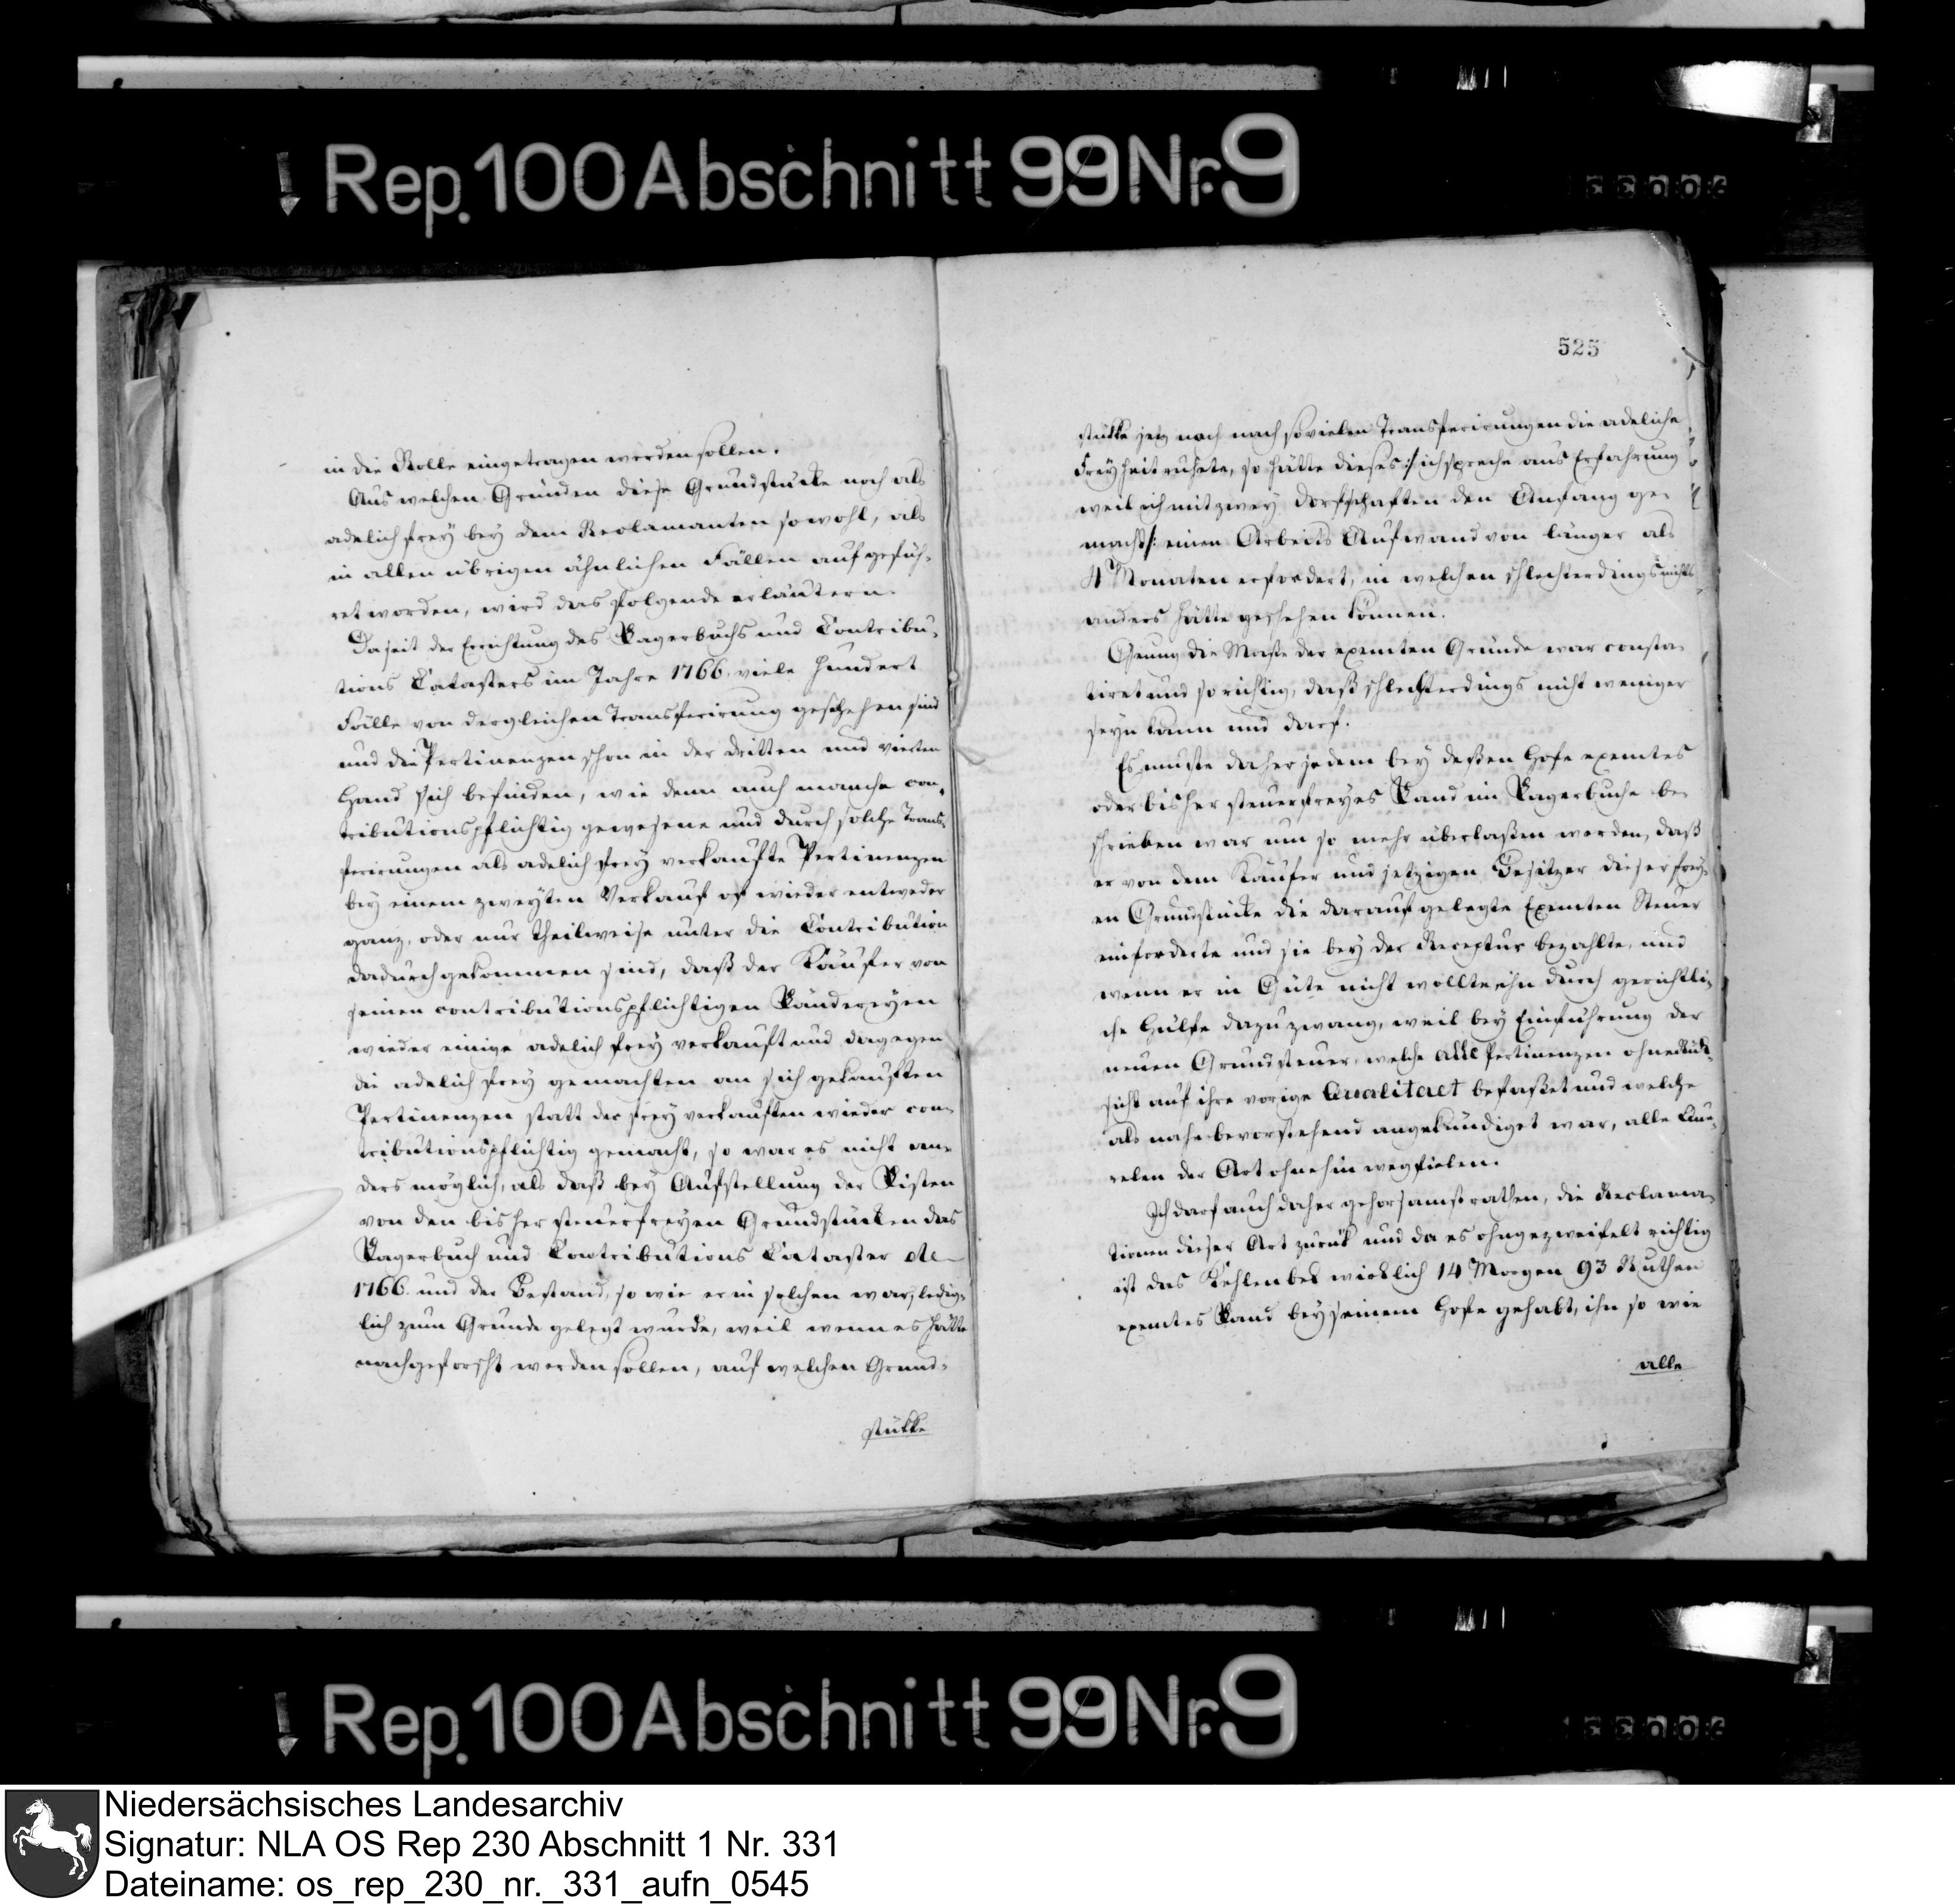 Rep. 100 Abschnitt 99 Nr. 9
in die Rolle eingetragen werden sollen.
Aus welchen Gründen diese Grundstücke noch als
adelich frey bey dem Reclamanten sowohl, als
in allen übrigen ähnlichen Fällen aufgefüh-
ret worden, wird das folgende erläutern.
Da seit der Errichtung des Lagerbuchs und Contribu-
tions Catasters im Jahre 1766. viele hundert
Fälle von dergleichen Transferirung geschehen sind
und die Pertinenzen schon in der dritten und vierten
Hand sich befinden, wie denn auch manche con-
tributionspflichtig gewesene und durch solche Trans-
ferirungen als adelich frey verkaufte Pertinenzen
bey einem zweyten Verkauf oft wieder entweder
ganz, oder nur theilweise unter die Contribution
dadurch gekommen sind, daß der Käufer von
seinen contributionspflichtigen Ländereyen
wieder einige adelich frey verkauft und dagegen
die adelich frey gemachten an sich gekauften
Pertinenzen statt der frey verkauften wieder con-
tributionspflichtig gemacht, so war es nicht an-
ders möglich, als daß bey Aufstellung der Listen
von den bisher steuerfreyen Grundstücken das
Lagerbuch und Contributions Cataster de
1766. und der Bestand, so wie er in solchen war, ledig-
lich zum Grunde gelegt wurde, weil wenn es hätte
nachgeforscht werden sollen, auf welchen Grund-
stükke
525
stükke jetz noch nach so vielen Transferirungen die adeliche
Freyheit ruhete, so hätte dieses /: ich spreche aus Erfahrung
weil ich mit zwey Dorfschaften den Anfang ge-
macht :/ einen Arbeits Aufwand von länger als
4 Monaten erfordert, in welchen schlechterdings nichts
anders hätte geschehen können.
Genung die Maße der exemten Gründe war consta-
tiret und so richtig, daß schlechterdings nicht weniger
seyn kann und darf.
Es muste daher jedem bey deßen Hofe exemtes
oder bisher steuerfreyes Land im Lagerbuche be-
schrieben war um so mehr überlaßen werden, daß
er von dem Käufer und jetzigen Besitzer dieser frey-
en Grundstücke die darauf gelegte Exemten Steuer
einforderte und sie bey der Receptur bezahlte, und
wenn er in Güte nicht wollte, ihn durch gerichtli-
che Hülfe dazu zwang, weil bey Einführung der
neuen Grundsteuer, welche alle Pertinenzen ohne Rük-
sicht auf ihre vorige Qualitaet befaßet und welche
als nahe bevorstehend angekündiget war, alle Que-
relen der Art ohnehin wegfielen.
Ich darf auch daher gehorsamst rathen, die Reclama-
tionen dieser Art zurük und da es ohngezweifelt richtig
ist das Kehlenbek wirklich 14 Morgen 93 Ruthen
exemtes Land bey seinem Hofe gehabt, ihn so wie
alle
Rep. 100 Abschnitt 99 Nr. 9
Niedersächsisches Landesarchiv
Signatur: NLA OS Rep 230 Abschnitt 1 Nr. 331
Dateiname: os_rep_230_nr._331_aufn_0545